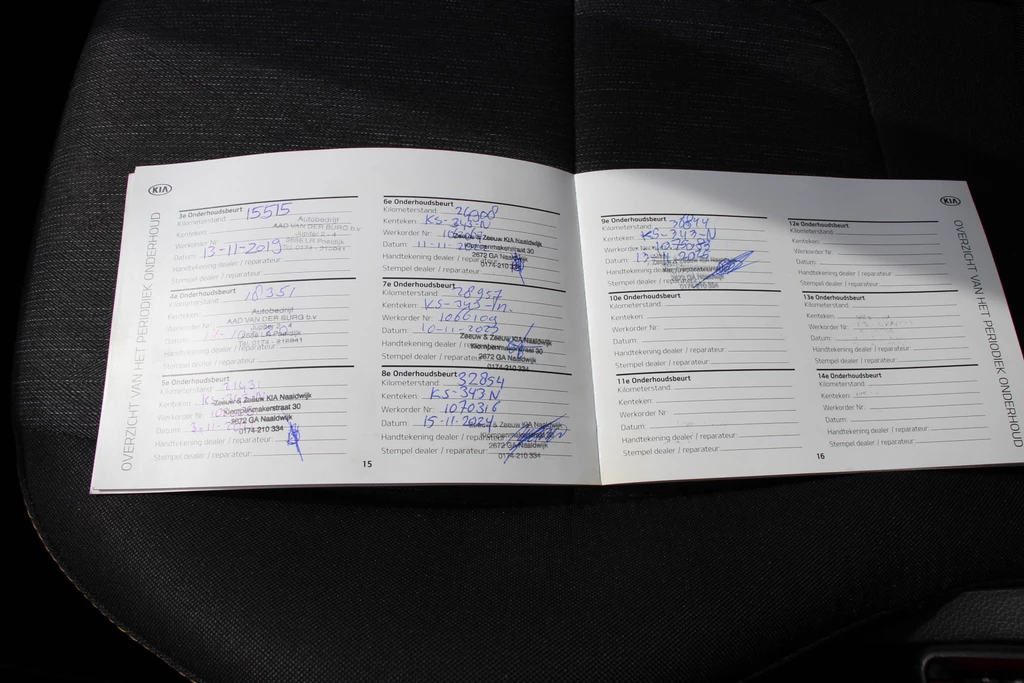 KIA
OVERZICHT VAN HET PERIODIEK ONDERHOUD
3e Onderhoudsbeurt
Kilometerstand 15515
Kenteken:
Werkorder Nr
Datum: 13-11-2019
Handtekening dealer / reparateur:
Stempel dealer / reparateur:
Autobedrijf
AAD VAN DER BURG b.v
Jupiter 2 - 4
2685 LR Poeldijk
4e Onderhoudsbeurt
Kilometerstand 18351
Kenteken:
Werkorder Nr
Datum:
Handtekening dealer / reparateur:
Stempel dealer / reparateur:
Autobedrijf
AAD VAN DER BURG b.v
Jupiter 2 - 4
5e Onderhoudsbeurt
Kilometerstand
Kenteken:
Werkorder Nr
Datum:
Handtekening dealer / reparateur:
Stempel dealer / reparateur:
Zeeuw & Zeeuw KIA Naaldwijk
Klompenmakerstraat 30
2672 GA Naaldwijk
0174-210 334
6e Onderhoudsbeurt
Kilometerstand
Kenteken: KS-343-N
Werkorder Nr:
Datum: 11-11-
Handtekening dealer / reparateur:
Stempel dealer / reparateur:
Zeeuw & Zeeuw KIA Naaldwijk
Klompenmakerstraat 30
2672 GA Naaldwijk
0174-210 334
7e Onderhoudsbeurt
Kilometerstand: 28957
Kenteken: KS-343-N.
Werkorder Nr: 1066109
Datum: 10-11-2023
Handtekening dealer / reparateur:
Stempel dealer / reparateur:
Zeeuw & Zeeuw KIA Naaldwijk
Klompenmakerstraat 30
2672 GA Naaldwijk
0174-210 334
8e Onderhoudsbeurt
Kilometerstand: 32854
Kenteken: KS-343N
Werkorder Nr: 1070316
Datum: 15-11-2024
Handtekening dealer / reparateur:
Stempel dealer / reparateur:
Zeeuw & Zeeuw KIA Naaldwijk
Klompenmakerstraat 30
2672 GA Naaldwijk
0174-210 334
15
9e Onderhoudsbeurt
Kilometerstand:
Kenteken: KS-343-N
Werkorder Nr:
Datum: 13-11-2025
Handtekening dealer / reparateur:
Stempel dealer / reparateur:
0174-210 334
10e Onderhoudsbeurt
Kilometerstand:
Kenteken:
Werkorder Nr:
Datum:
Handtekening dealer / reparateur:
Stempel dealer / reparateur:
11e Onderhoudsbeurt
Kilometerstand:
Kenteken:
Werkorder Nr:
Datum:
Handtekening dealer / reparateur:
Stempel dealer / reparateur:
12e Onderhoudsbeurt
Kilometerstand:
Kenteken:
Werkorder Nr:
Datum:
Handtekening dealer / reparateur:
Stempel dealer / reparateur:
13e Onderhoudsbeurt
Kilometerstand:
Kenteken:
Werkorder Nr:
Datum:
Handtekening dealer / reparateur:
Stempel dealer / reparateur:
14e Onderhoudsbeurt
Kilometerstand:
Kenteken:
Werkorder Nr:
Datum:
Handtekening dealer / reparateur:
Stempel dealer / reparateur:
16
KIA
OVERZICHT VAN HET PERIODIEK ONDERHOUD